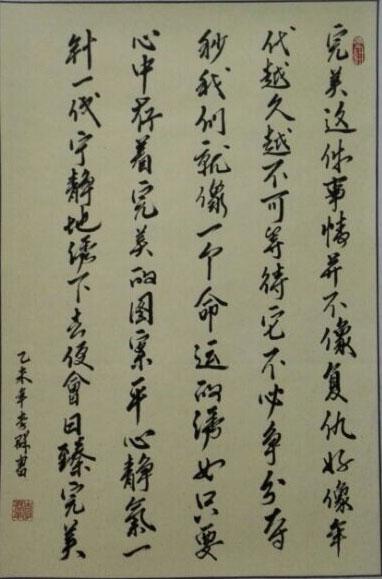 完美这件事情并不像复仇好像年
代越久越不可等待它不必争分夺
秒我们就像一个命运的绣女只要
心中存着完美的图案平心静氣一
针一线宁静地绣下去便會日臻完美
乙未年書